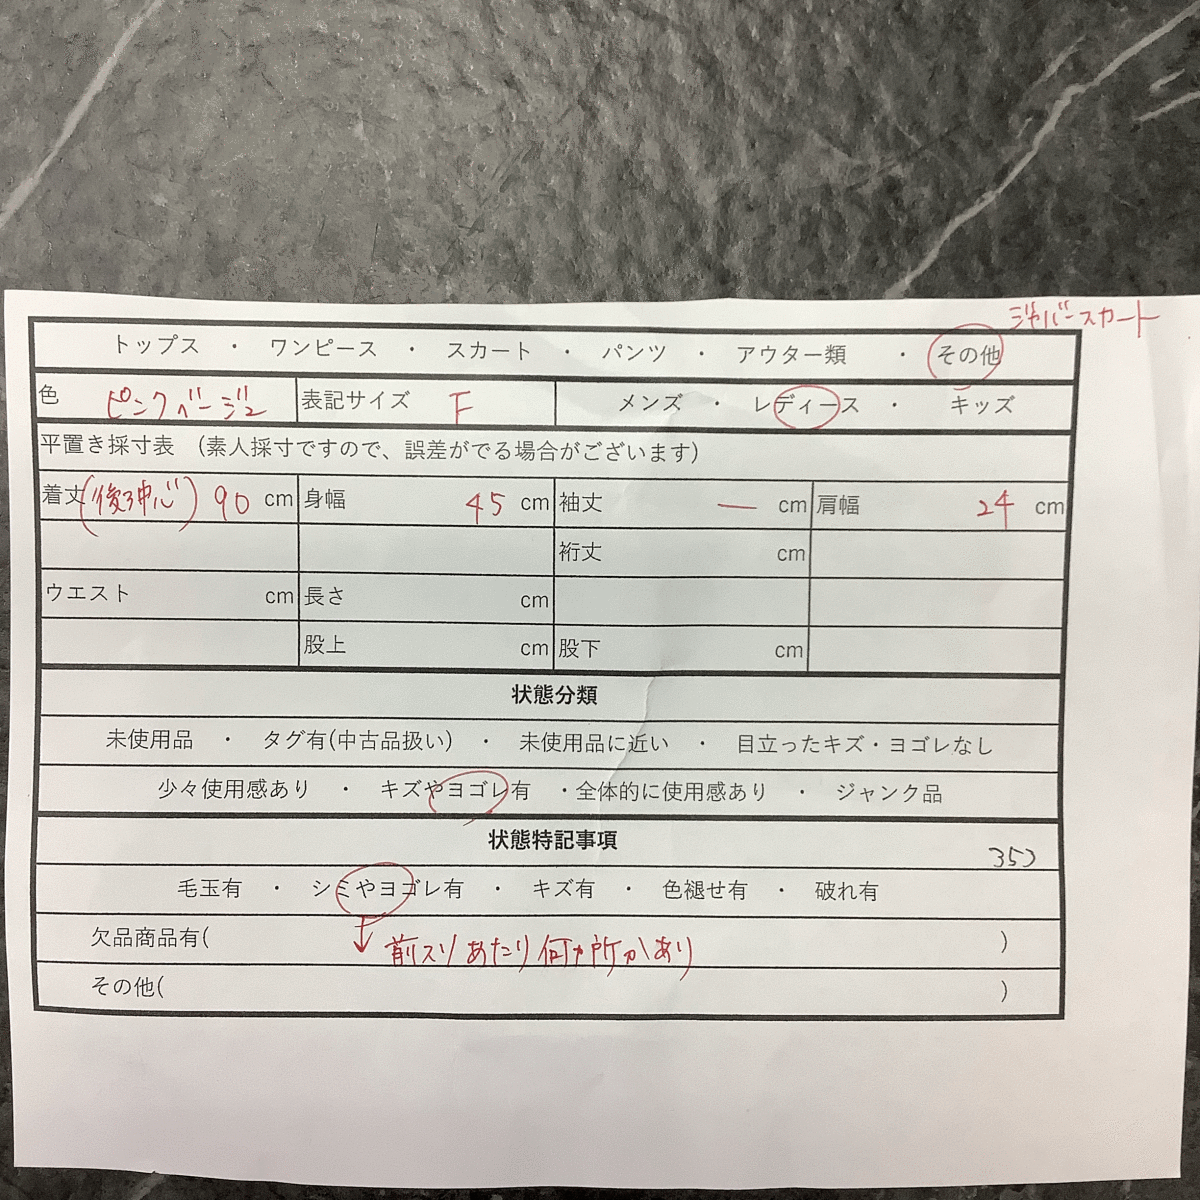 ジャバースカート
トップス ・ ワンピース ・ スカート ・ パンツ ・ アウター類 ・ その他
色 ピンクベージュ 表記サイズ F メンズ ・ レディース ・ キッズ
平置き採寸表 (素人採寸ですので、誤差がでる場合がございます)
着丈(後ろ中心) 90 cm 身幅 45 cm 袖丈 ― cm 肩幅 24 cm
裄丈 cm
ウエスト cm 長さ cm
股上 cm 股下 cm
状態分類
未使用品 ・ タグ有(中古品扱い) ・ 未使用品に近い ・ 目立ったキズ・ヨゴレなし
少々使用感あり ・ キズやヨゴレ有 ・全体的に使用感あり ・ ジャンク品
状態特記事項
毛玉有 ・ シミやヨゴレ有 ・ キズ有 ・ 色褪せ有 ・ 破れ有
欠品商品有( )
前スソあたり何ヵ所かあり
その他( )